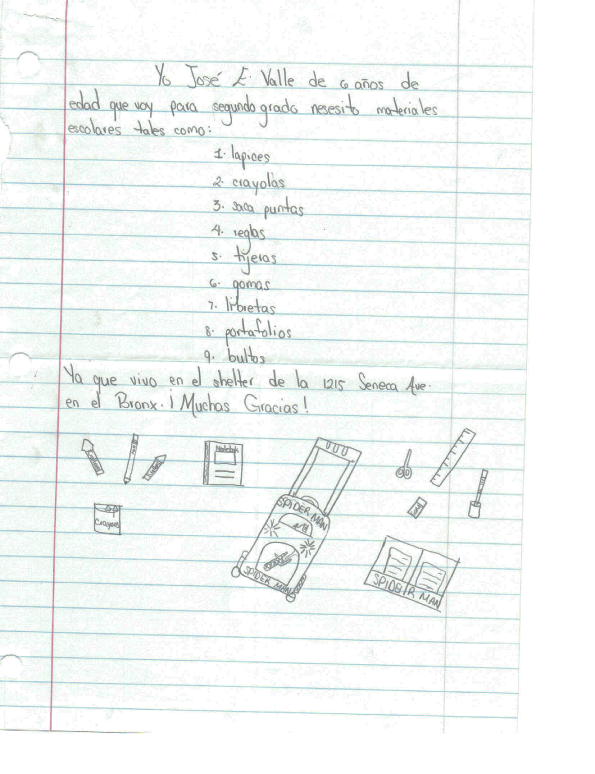 Yo José E. Valle de 6 años de
edad que voy para segundo grado nesesito materiales
escolares tales como:
1. lapices
2. crayolas
3. saca puntas
4. reglas
5. tijeras
6. gomas
7. libretas
8. portafolios
9. bultos
Ya que vivo en el shelter de la 1215 Seneca Ave.
en el Bronx. ¡Muchas Gracias!
Notebook
Crayons
SPIDER MAN
SPIDER MAN
SPIDER MAN